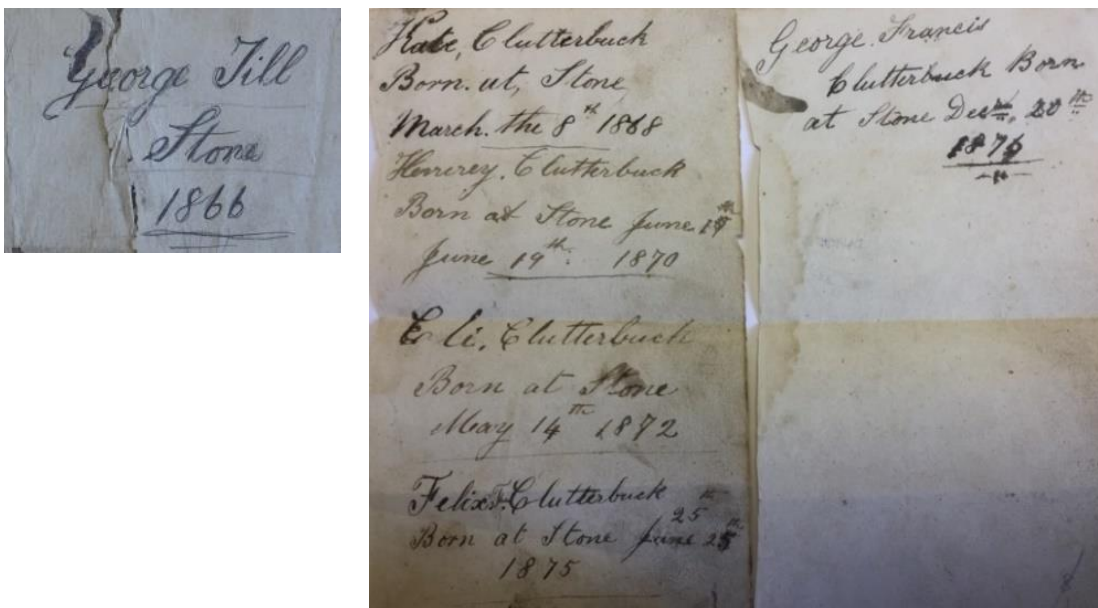 George Till
Stone
1866
Kate, Clutterbuck
Born. at, Stone
March. the 8th 1868
Henerey. Clutterbuck
Born at Stone June 19th
June 19th. 1870
Eli. Clutterbuck
Born at Stone
May 14th 1872
Felix F. Clutterbuck
25th
Born at Stone June 25th
1875
George. Francis
Clutterbuck Born
at Stone Decr. 20th
1876